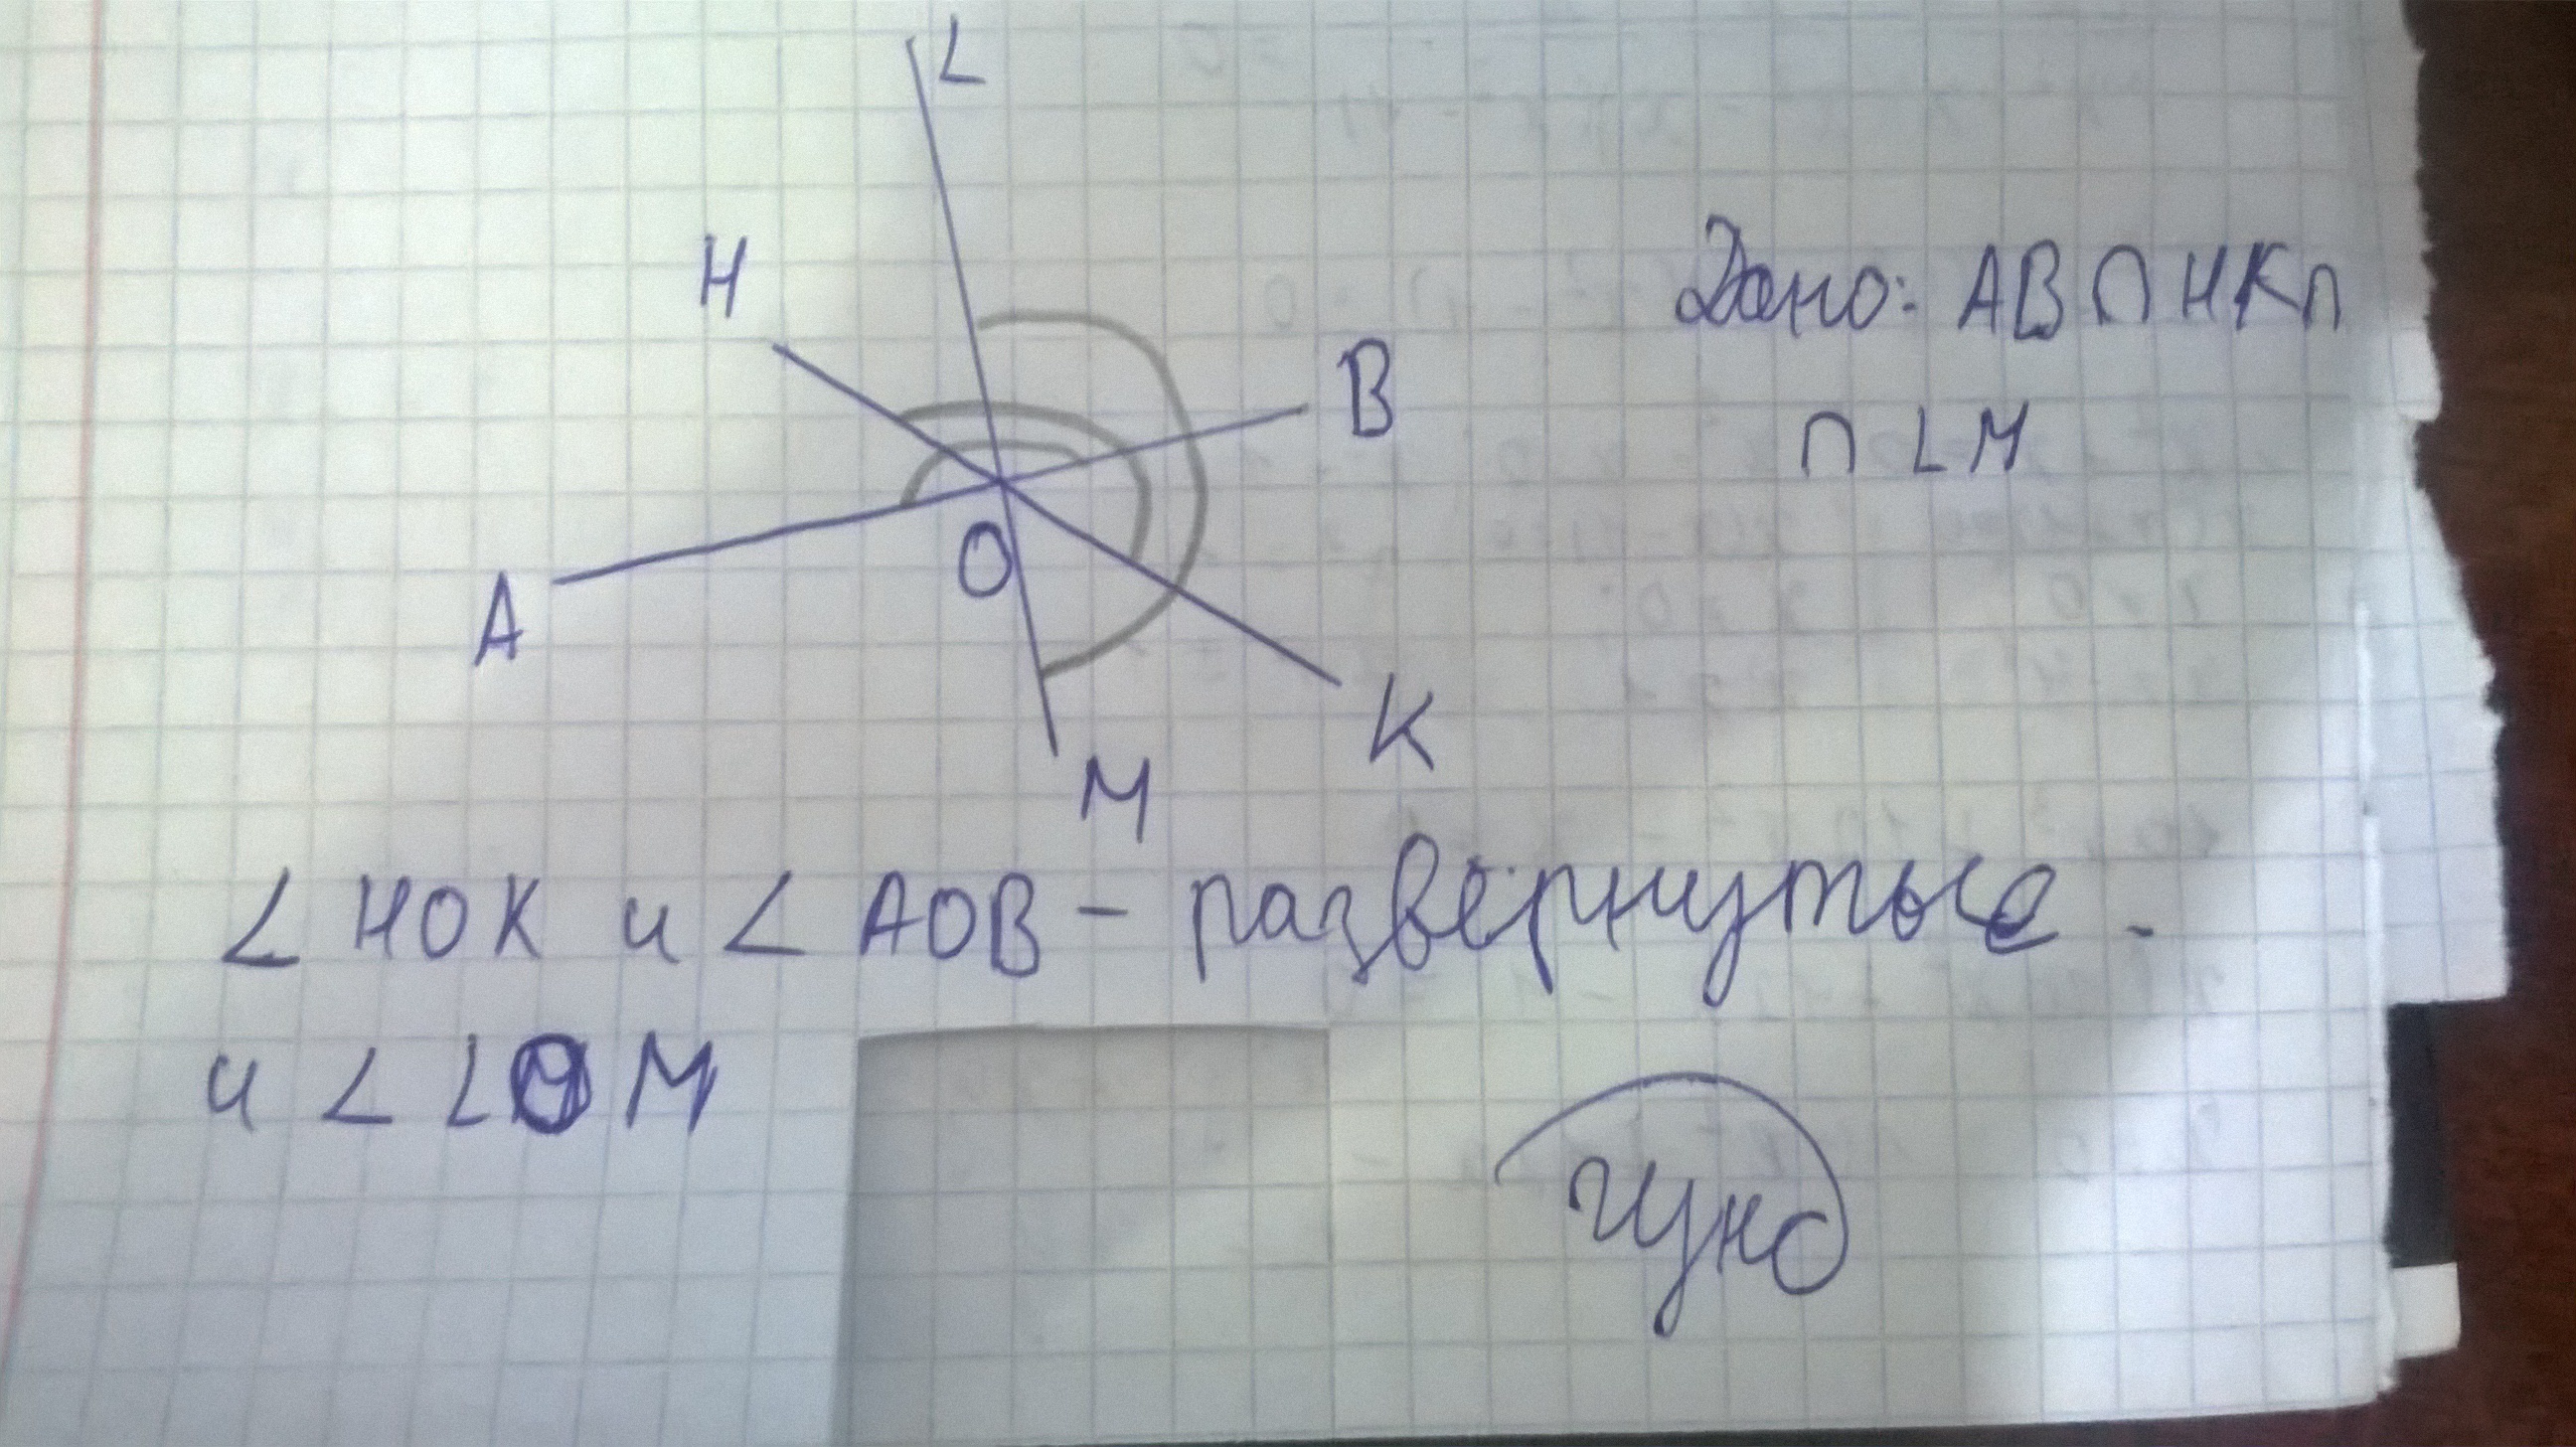 L
H
B
O
A
K
M
Дано: AB ∩ HK ∩
∩ LM
∠ HOK и ∠ AOB - развернутые.
и ∠ LOM